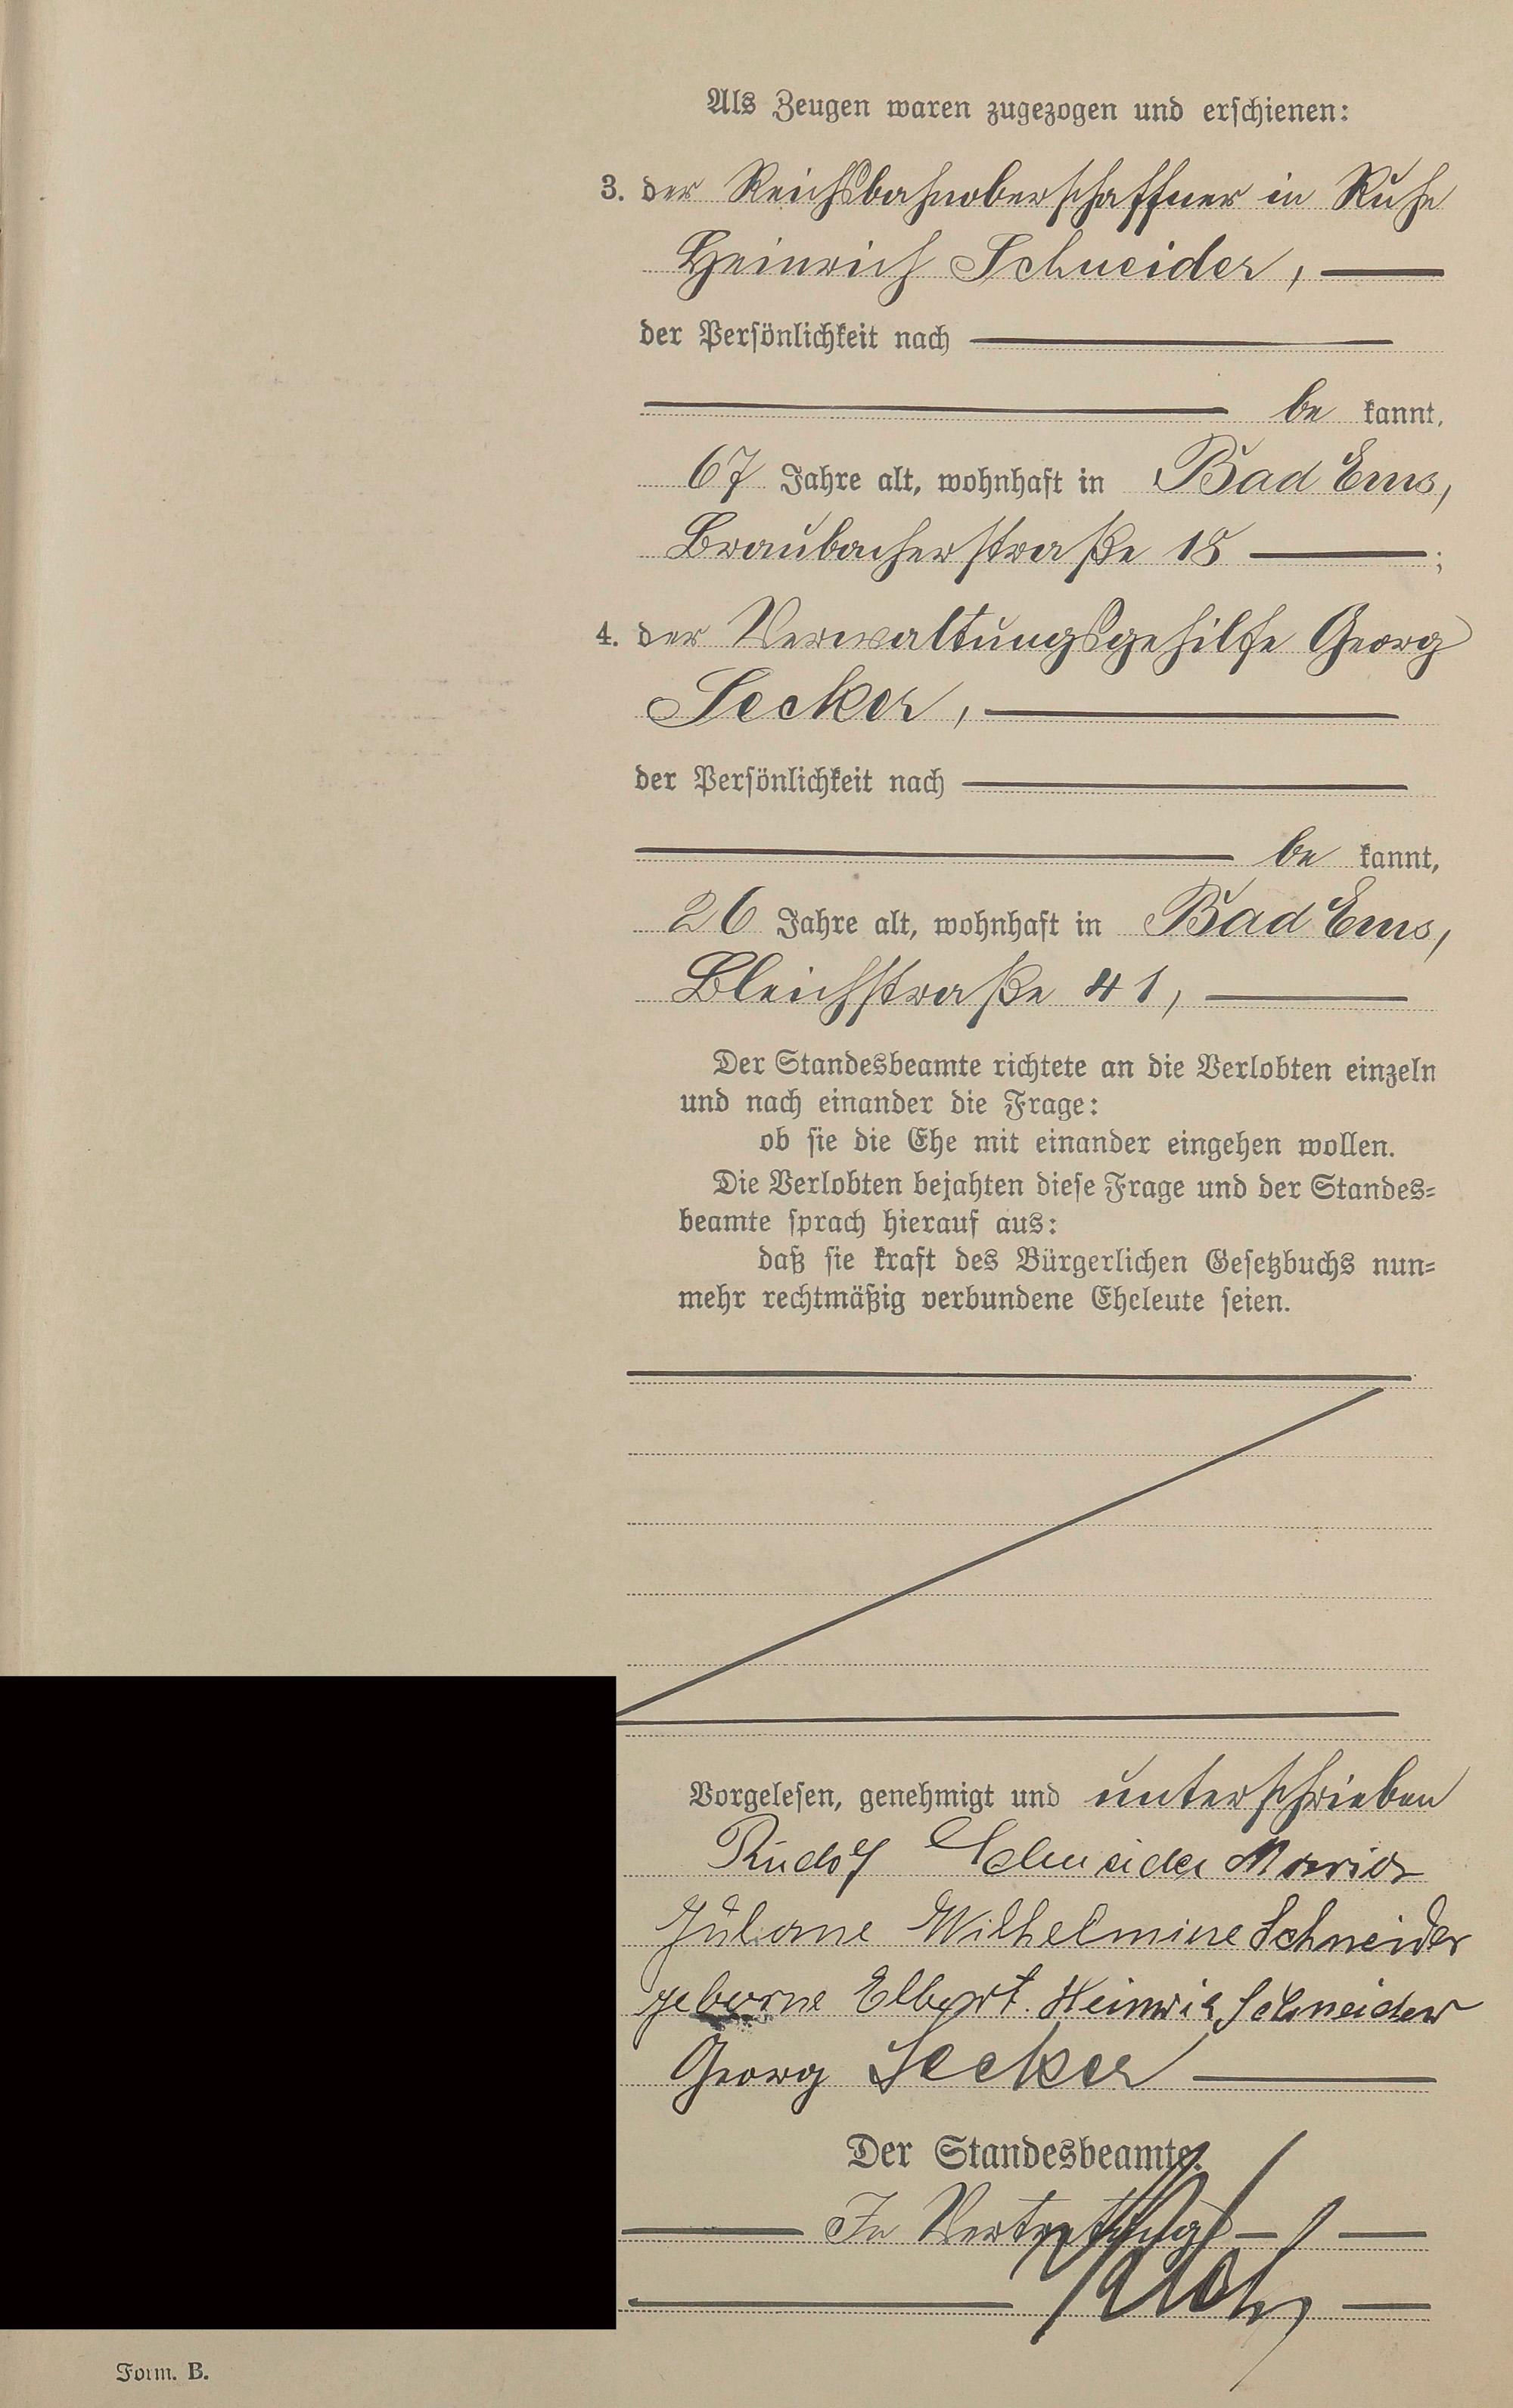 Als Zeugen waren zugezogen und erschienen:
3. der Reichsbahnoberschaffner in Ruhe
Heinrich Schneider,
der Persönlichkeit nach
be kannt,
67 Jahre alt, wohnhaft in Bad Ems,
Braubacherstraße 18 ;
4. der Verwaltungsgehilfe Georg
Secker,
der Persönlichkeit nach
be kannt,
26 Jahre alt, wohnhaft in Bad Ems,
Bleichstraße 41,
Der Standesbeamte richtete an die Verlobten einzeln
und nach einander die Frage:
ob sie die Ehe mit einander eingehen wollen.
Die Verlobten bejahten diese Frage und der Standes=
beamte sprach hierauf aus:
daß sie kraft des Bürgerlichen Gesetzbuchs nun=
mehr rechtmäßig verbundene Eheleute seien.
Vorgelesen, genehmigt und unterschrieben
Rudolf Schneider Maria
Juliane Wilhelmine Schneider
geborne Elbert. Heinrich Schneider
Georg Secker
Der Standesbeamte.
In Vertretung
Form. B.